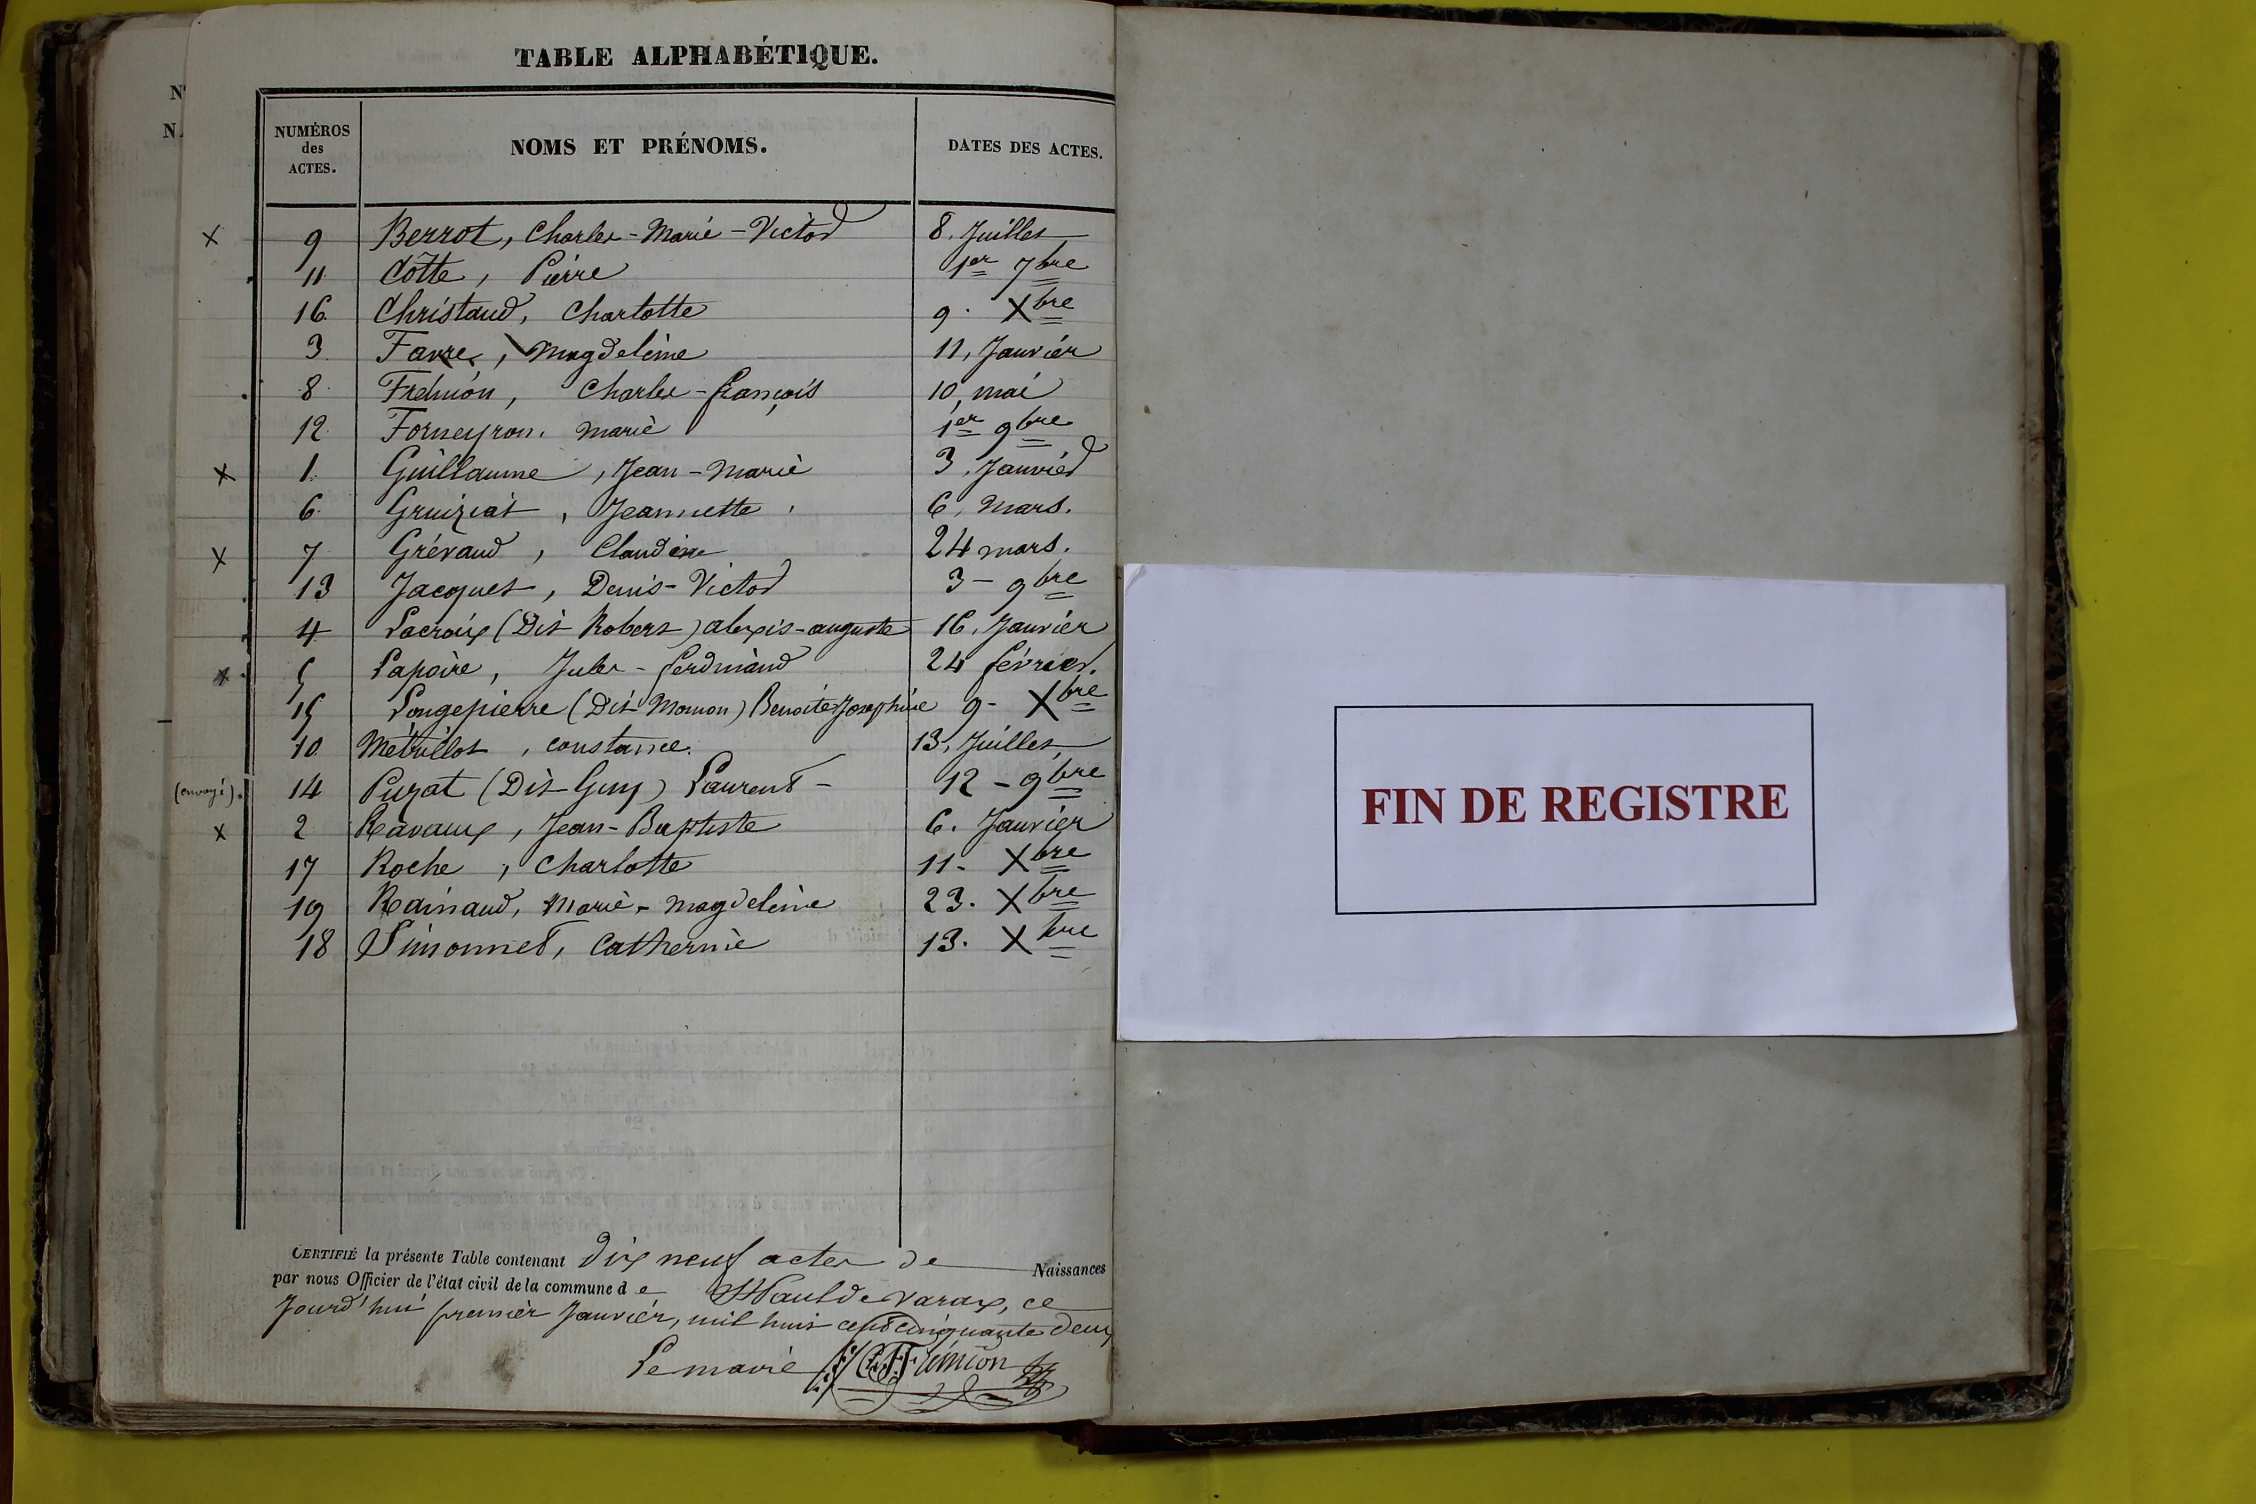 TABLE ALPHABÉTIQUE.
NUMÉROS des ACTES. NOMS ET PRÉNOMS. DATES DES ACTES.
x 9 Berrot, Charles-Marie-Victor 8. Juillet
11 Côtte, Pierre 1er 7bre
16 Christaud, Charlotte 9. Xbre
3 Favre, Magdeleine 11, Janvier
8 Frémion, Charles-françois 10, mai
12 Forneyron, Marie 1er 9bre
x 1 Guillaume, Jean-Marie 3. Janvier
6 Gruiziat, Jeannette 6, Mars.
x 7 Grévaud, Claudine 24 mars.
13 Jacquet, Denis-Victor 3 - 9bre
4 Lacroix (Dit Robert) alexis-auguste 16, Janvier
x 5 Lapoire, Jules-ferdinand 24 février.
15 Longepierre (Dit Momon) Benoite Josephine 9 - Xbre
10 constance 13, Juillet
(envoyé) 14 Puzat (Dit Guy) Laurent - 12 - 9bre
x 2 Ravaux, Jean-Baptiste 6. Janvier
17 Roche, Charlotte 11 - Xbre
19 Rainaud, Marie-Magdeleine 23. Xbre
18 Simonnet, Catherine 13. Xbre
CERTIFIÉ la présente Table contenant dix neuf actes de Naissances
par nous Officier de l'état civil de la commune de St Paul de Varax, ce
Jourd'hui premier Janvier, mil huit cent cinquante deux
Le maire Frémion
FIN DE REGISTRE